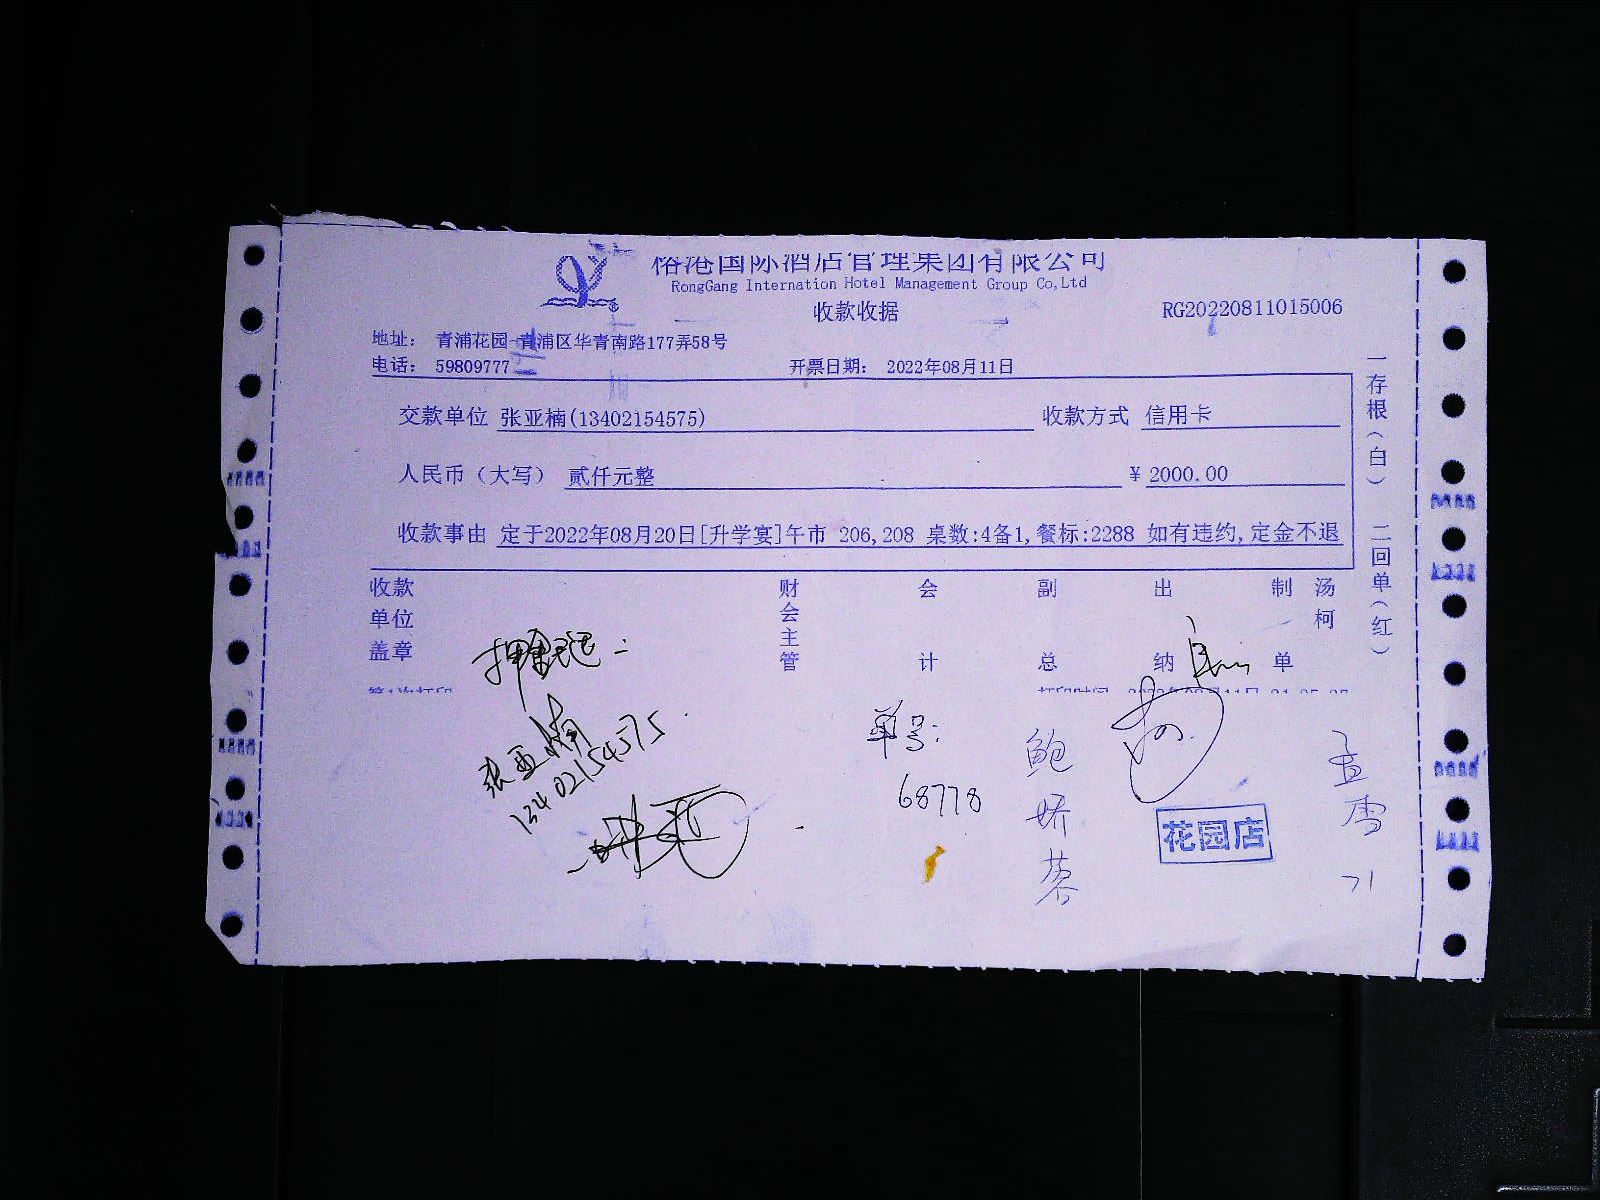 榕港国际酒店管理集团有限公司
RongGang Internation Hotel Management Group Co,Ltd
收款收据
RG20220811015006
地址： 青浦花园-青浦区华青南路177弄58号
电话： 59809777
开票日期： 2022年08月11日
交款单位 张亚楠(13402154575)
收款方式 信用卡
人民币（大写） 贰仟元整
¥ 2000.00
收款事由 定于2022年08月20日[升学宴]午市 206,208 桌数:4备1,餐标:2288 如有违约,定金不退
一存根（白） 二回单（红）
收款单位盖章
财会主管
会计
副总
出纳
制单
汤柯
押金已退
张亚楠
13402154575
单号:
68778
鲍娇蓉
花园店